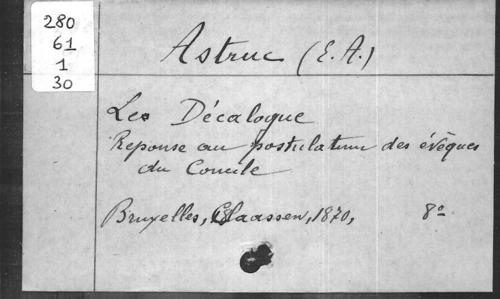 280
61
1
30
Astruc (E. A.)
Le Décalogue
Reponse au postulatum des évêques
du Concile
Bruxelles, Claassen, 1870, 8º